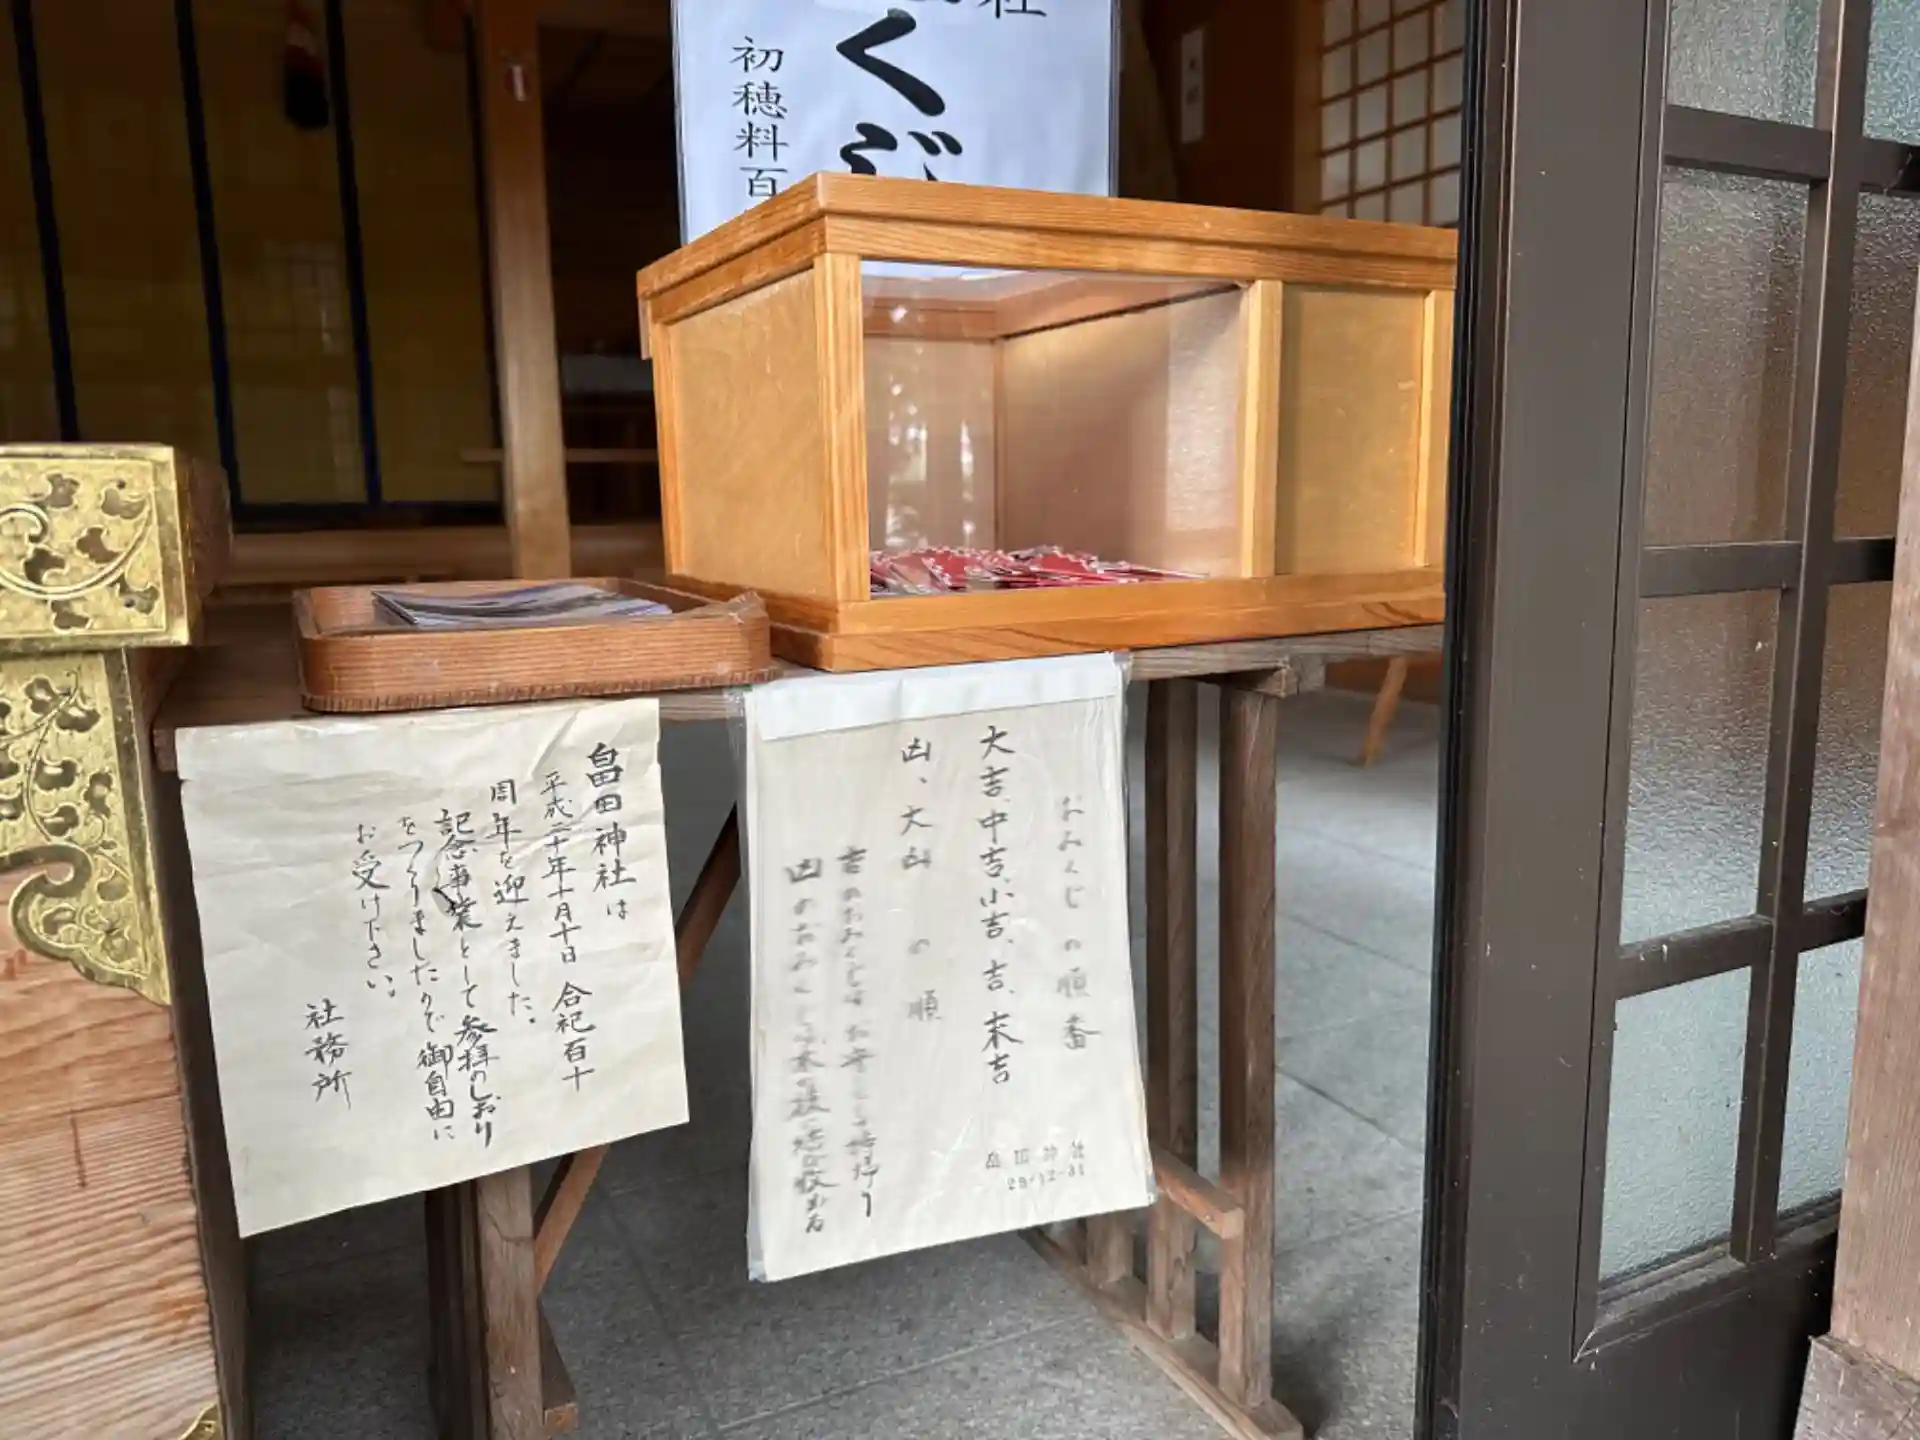 社
くじ
初穂料百
畠田神社は
平成二十年十月十日 合祀百十
周年を迎えました。
記念事業として参拝のしおり
をつくりましたので御自由に
お受け下さい。
社務所
おみくじの順番
大吉、中吉、小吉、吉、末吉
凶、大凶 の順
吉のおみくじは お守として持帰り
凶のおみくじは木の枝に
畠田神社
29.12.31